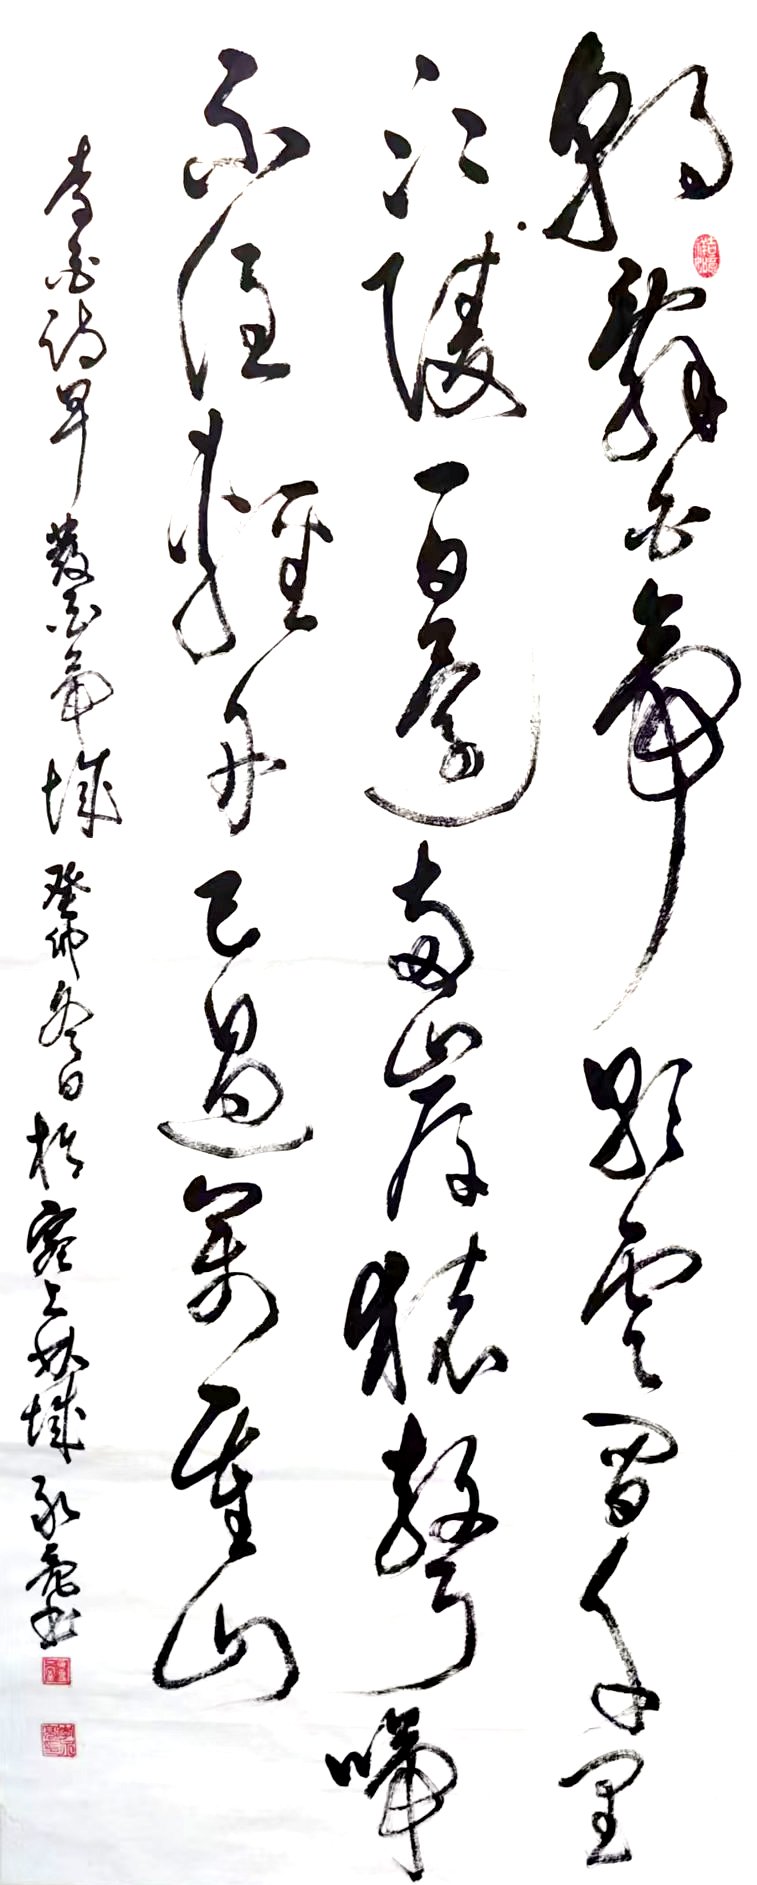 朝辭白帝彩雲間千里
江陵一日還兩岸猿聲啼
不住輕舟已過萬重山
李白詩早發白帝城癸卯冬日於上林城亮書